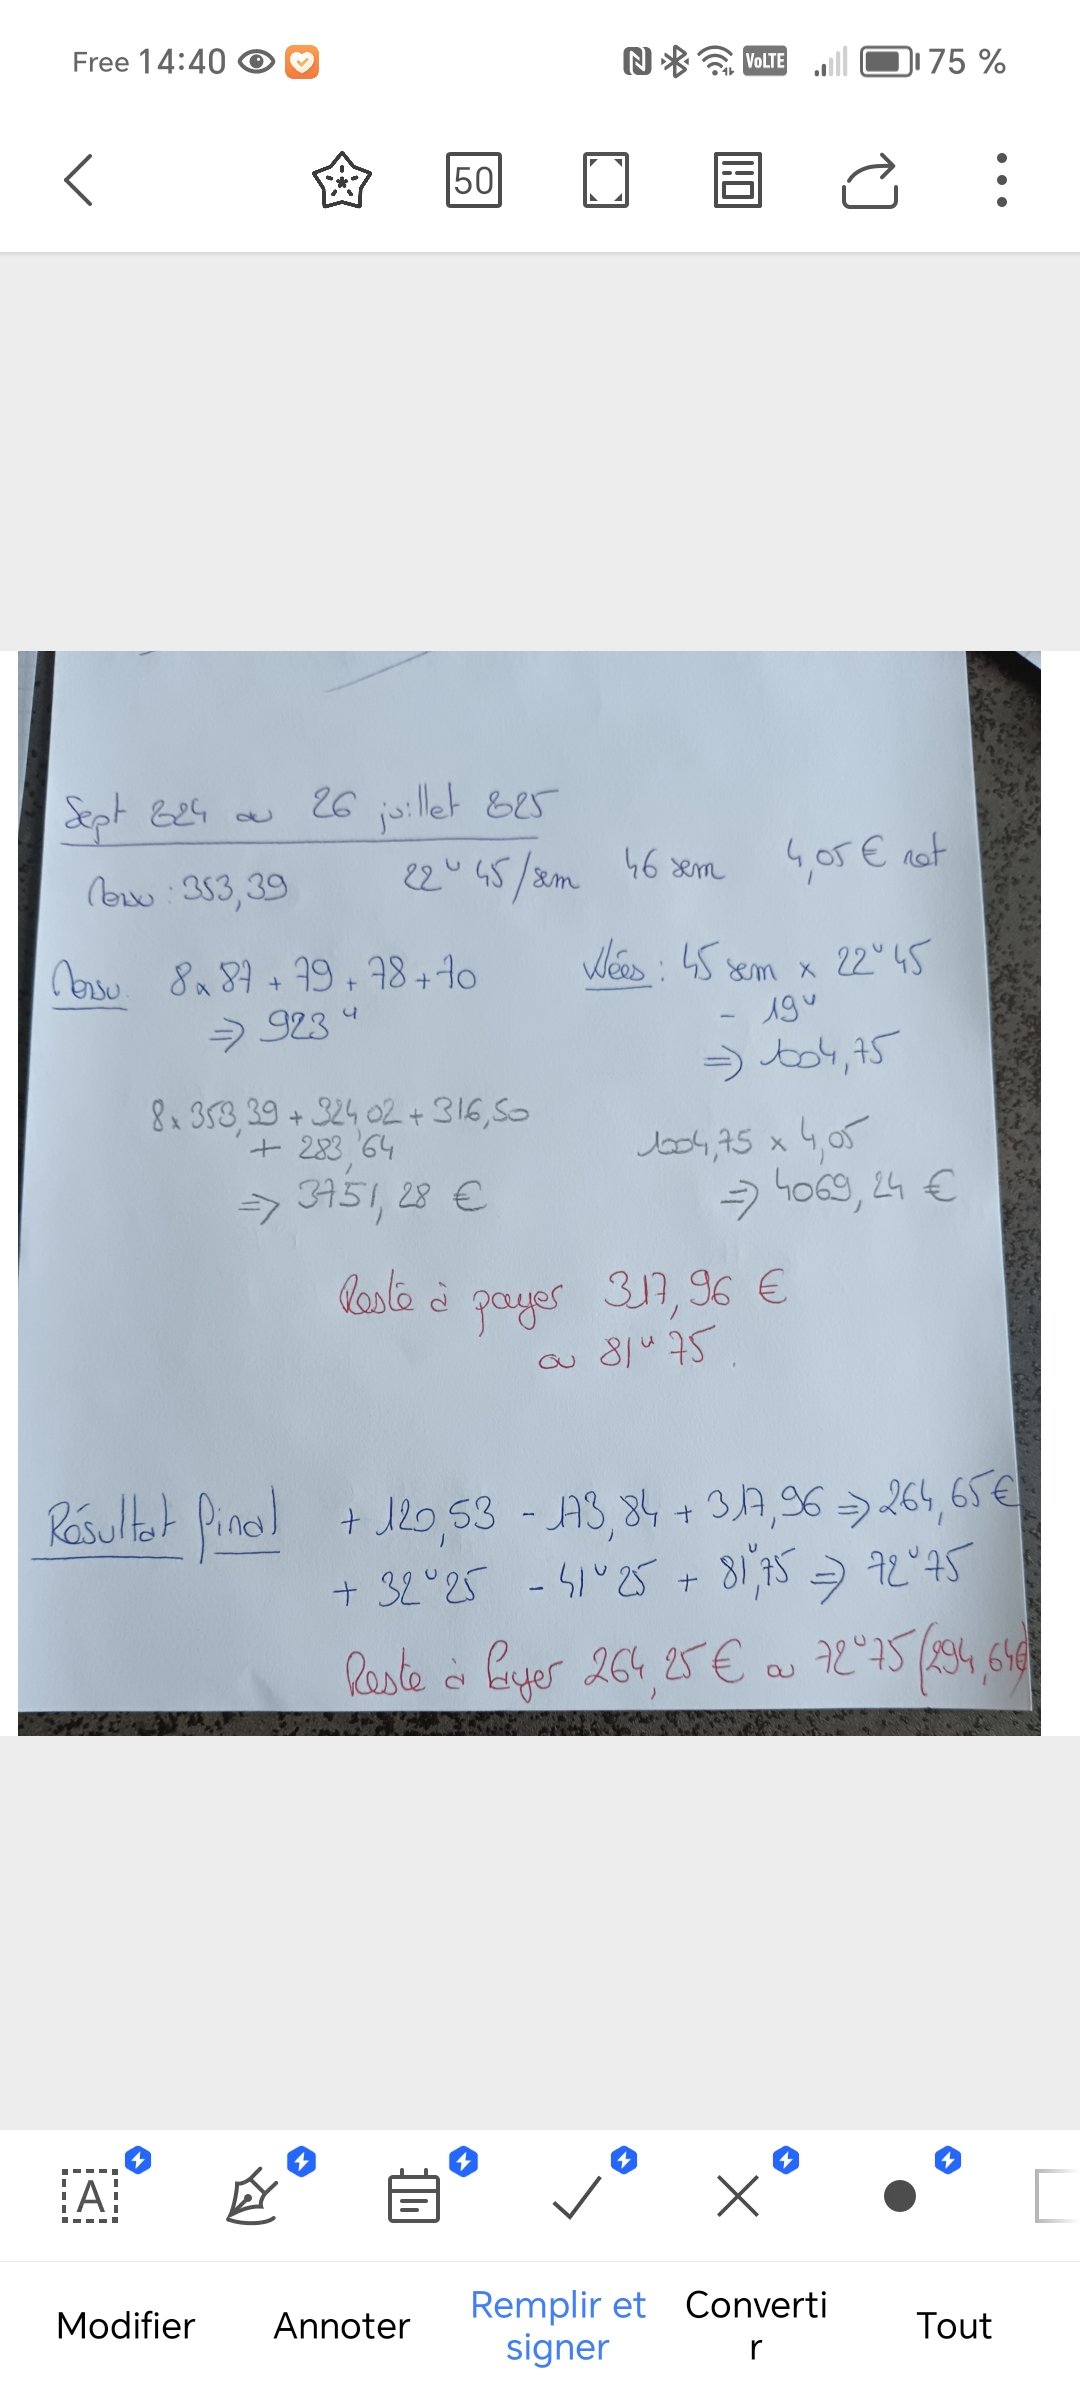 Free 14:40
VoLTE
75 %
50
Sept 2024 au 26 juillet 2025
Mensu : 353,39
22h45/sem
46 sem
4,05 € net
Mensu.
8x87 + 79 + 78 + 70
⇒ 923 h
Réés : 45 sem x 22h45
- 19h
⇒ 1004,75
8x353,39 + 324,02 + 316,50
+ 283,64
⇒ 3751,28 €
1004,75 x 4,05
⇒ 4069,24 €
Reste à payer 317,96 €
ou 81h75.
Résultat final + 120,53 - 173,84 + 317,96 ⇒ 264,65 €
+ 32h25 - 41h25 + 81h,75 ⇒ 72h75
Reste à Payer 264,25 € ou 72h75 (294,64€)
A
Modifier
Annoter
Remplir et
signer
Converti
r
Tout